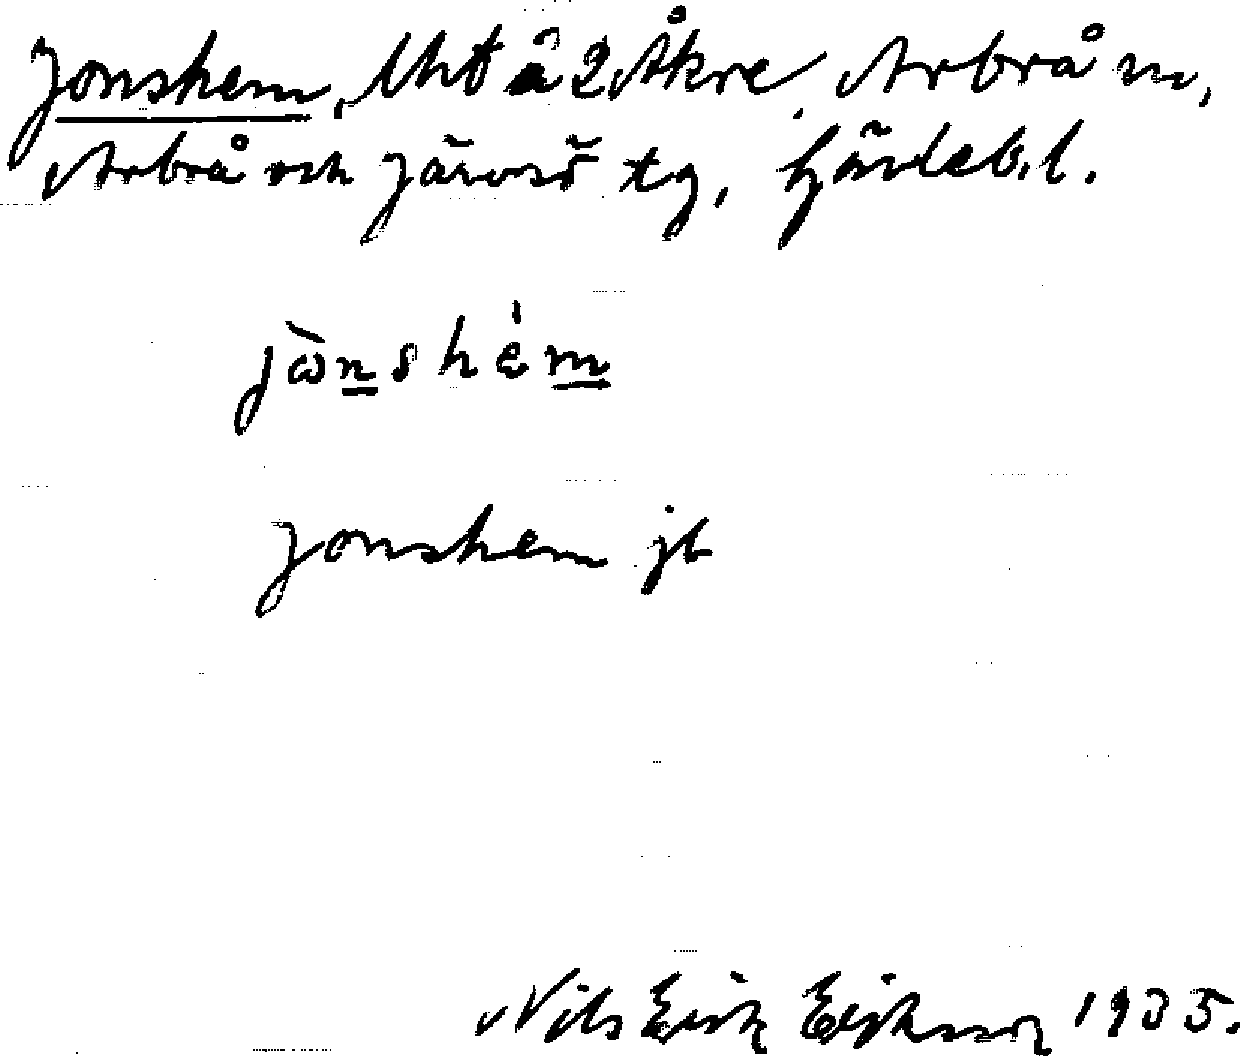 Jonshem, Uht å 2 Åkre, Arbrå sn,
Arbrå och Järvsö tg, Gävleb. l.
jònshém
Jonshem jb
Nils Erik Eriksson 1935.